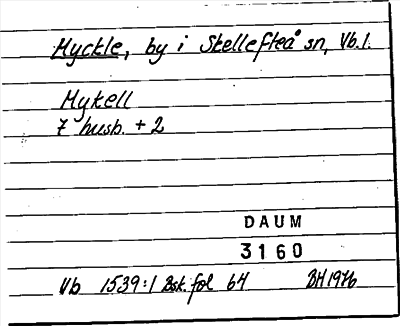 Myckle, by i Skellefteå sn, Vb. l.
Mykell
7 husb. + 2
DAUM
3160
Vb 1539:1 Bsk. fol 64 BH 1976